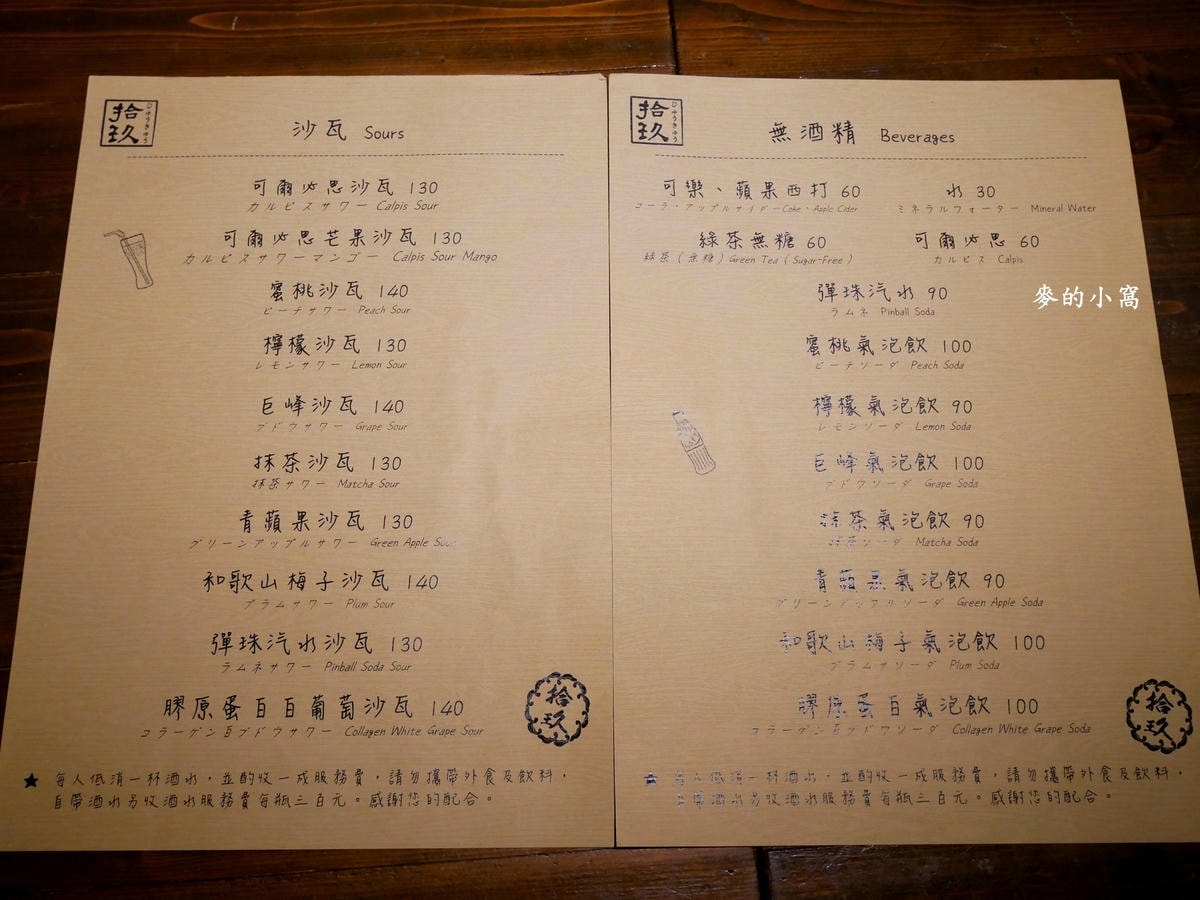 拾玖
じゅうきゅう
沙瓦 Sours
可爾必思沙瓦 130
カルピスサワー Calpis Sour
可爾必思芒果沙瓦 130
カルピスサワーマンゴー Calpis Sour Mango
蜜桃沙瓦 140
ピーチサワー Peach Sour
檸檬沙瓦 130
レモンサワー Lemon Sour
巨峰沙瓦 140
ブドウサワー Grape Sour
抹茶沙瓦 130
抹茶サワー Matcha Sour
青蘋果沙瓦 130
グリーンアップルサワー Green Apple Sour
和歌山梅子沙瓦 140
プラムサワー Plum Sour
彈珠汽水沙瓦 130
ラムネサワー Pinball Soda Sour
膠原蛋白白葡萄沙瓦 140
コラーゲン白ブドウサワー Collagen White Grape Sour
拾玖
★ 每人低消一杯酒水，並酌收一成服務費，請勿攜帶外食及飲料，
自帶酒水另收酒水服務費每瓶三百元。感謝您的配合。
拾玖
じゅうきゅう
無酒精 Beverages
可樂、蘋果西打 60 水 30
コーラ・アップルサイダー Coke・Apple Cider ミネラルウォーター Mineral Water
綠茶無糖 60 可爾必思 60
緑茶（無糖）Green Tea ( Sugar-Free ) カルピス Calpis
彈珠汽水 90
ラムネ Pinball Soda
麥的小窩
蜜桃氣泡飲 100
ピーチソーダ Peach Soda
檸檬氣泡飲 90
レモンソーダ Lemon Soda
巨峰氣泡飲 100
ブドウソーダ Grape Soda
抹茶氣泡飲 90
抹茶ソーダ Matcha Soda
青蘋果氣泡飲 90
グリーンアップルソーダ Green Apple Soda
和歌山梅子氣泡飲 100
プラムソーダ Plum Soda
膠原蛋白氣泡飲 100
コラーゲン白ブドウソーダ Collagen White Grape Soda
拾玖
★ 每人低消一杯酒水，並酌收一成服務費，請勿攜帶外食及飲料，
自帶酒水另收酒水服務費每瓶三百元。感謝您的配合。